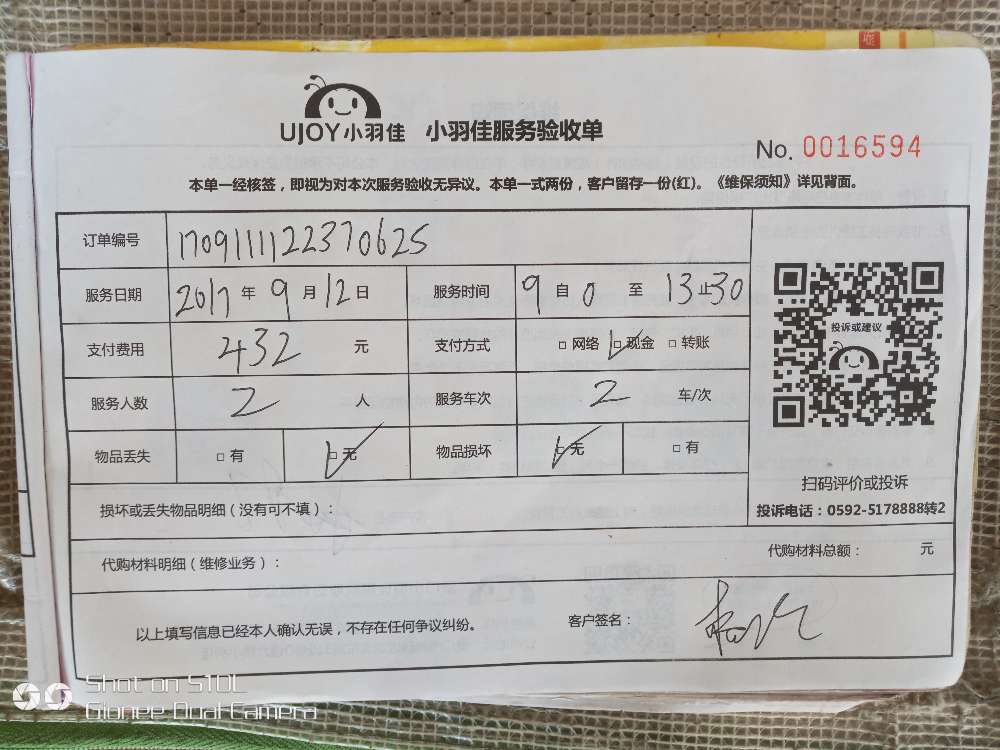 UJOY小羽佳 小羽佳服务验收单
No. 0016594
本单一经核签，即视为对本次服务验收无异议。本单一式两份，客户留存一份(红)。《维保须知》详见背面。
订单编号 1709111122370625
服务日期 2017 年 9 月 12 日 服务时间 9 自 0 至 13 止 30
支付费用 432 元 支付方式 □ 网络 □ 现金 □ 转账
投诉或建议
服务人数 2 人 服务车次 2 车/次
物品丢失 □ 有 □ 无 物品损坏 □ 无 □ 有
扫码评价或投诉
损坏或丢失物品明细（没有可不填）：
投诉电话：0592-5178888转2
代购材料明细（维修业务）：
代购材料总额： 元
以上填写信息已经本人确认无误，不存在任何争议纠纷。 客户签名：
Shot on S10L
Gionee Dual Camera